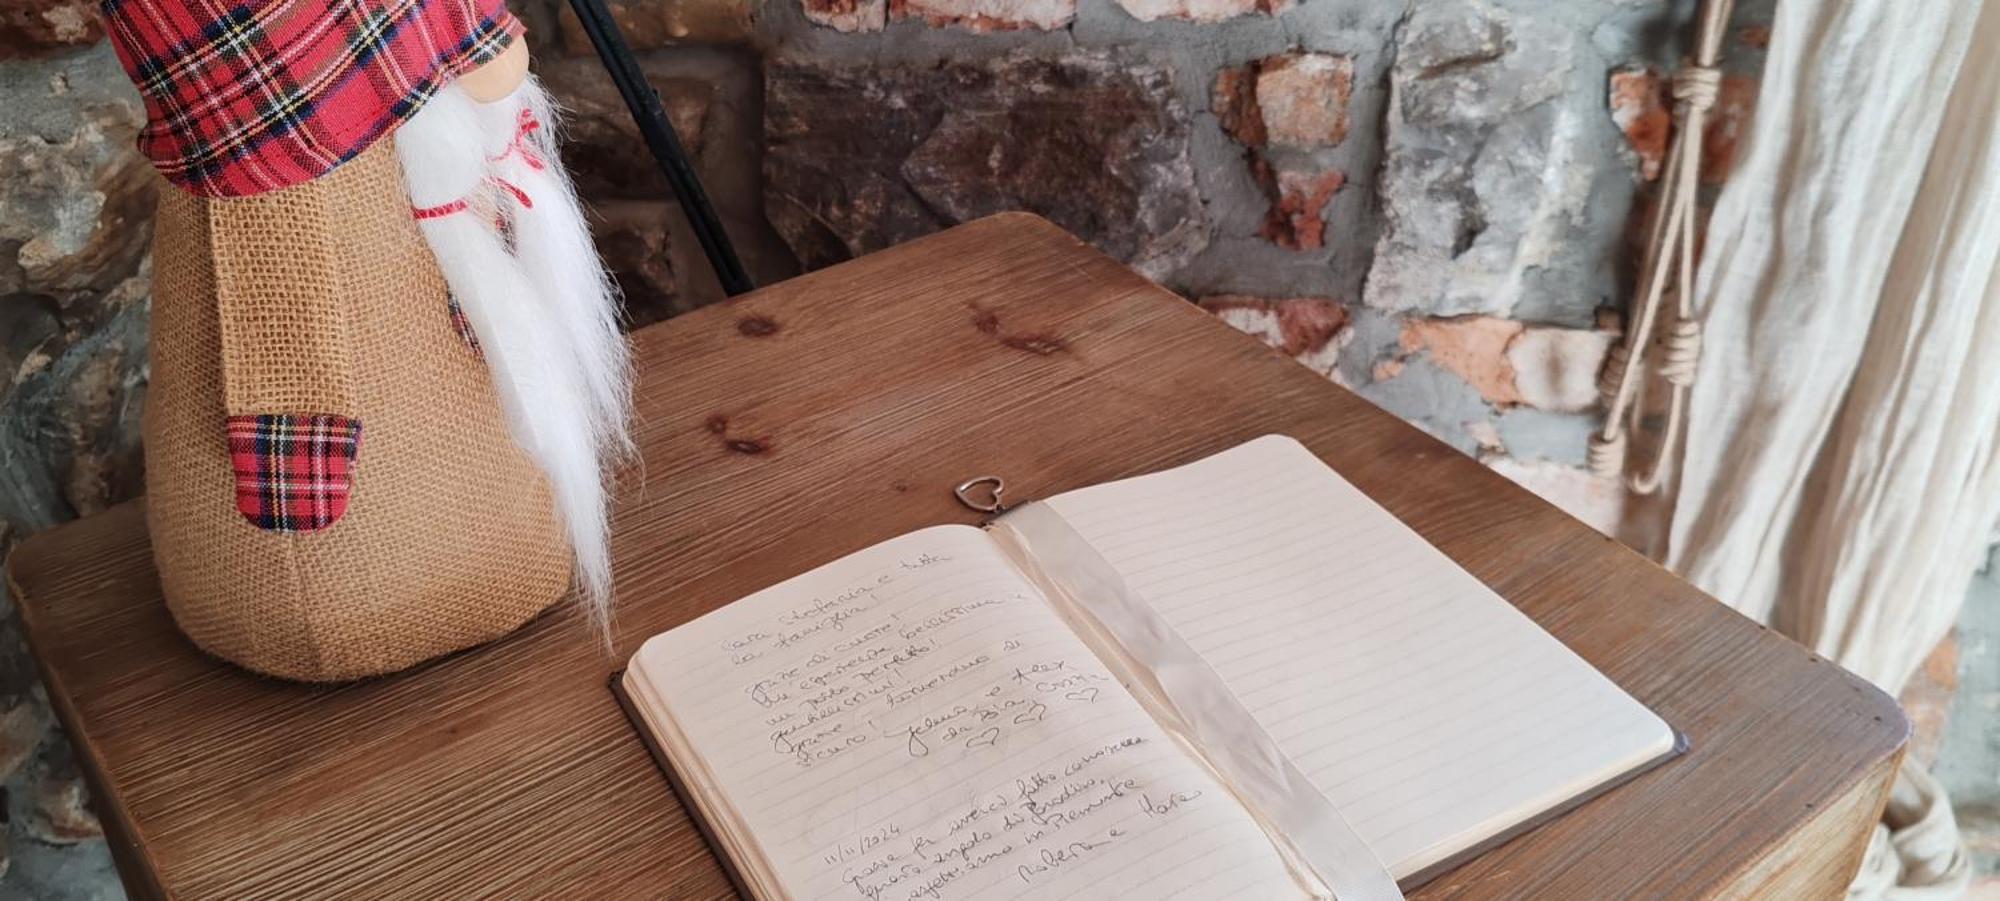 Cara Stefania e tutta
la famiglia!
Grazie di cuore!
Un'esperienza bellissima e
un posto perfetto!
Gentilissimi!
Grazie! Torneremo di
sicuro! Jelena e Alex
da Bia
11/11/2024
Grazie per averci fatto conoscere
questo angolo di Paradiso,
aspettiamo in Piemonte
Roberta e Marco